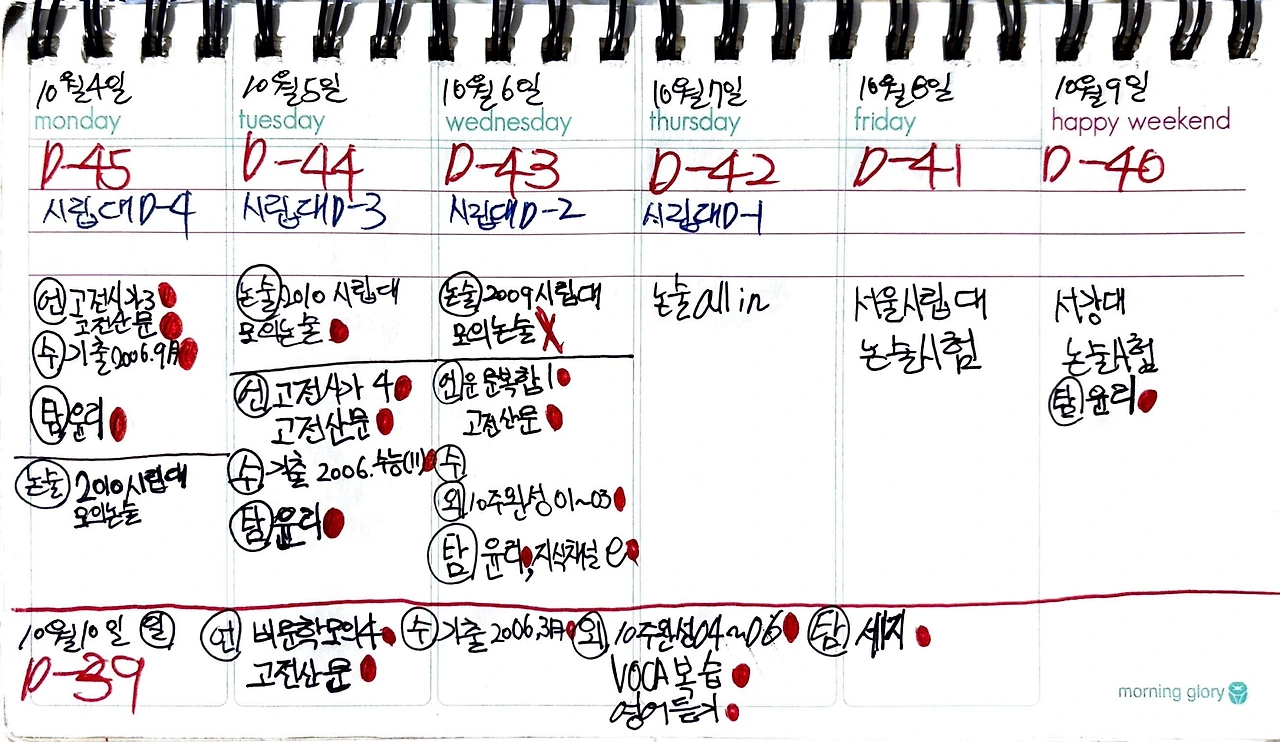 10월4일
monday
D-45
시립대D-4
언 고전시가3
고전산문
수 기출2006.9月
탐 윤리
논술 2010시립대
모의논술
10월5일
tuesday
D-44
시립대D-3
논술 2010 시립대
모의논술
언 고전시가 4
고전산문
수 기출 2006.수능(11)
탐 윤리
10월6일
wednesday
D-43
시립대D-2
논술 2009시립대
모의논술 X
언 운문복합1
고전산문
수
외 10주완성 01~03
탐 윤리, 지식채널 e
10월7일
thursday
D-42
시립대D-1
논술all in
10월8일
friday
D-41
서울시립대
논술시험
10월9일
happy weekend
D-40
서강대
논술시험
탐 윤리
10월10일 월
D-39
언 비문학모의4
고전산문
수 기출2006.3月
외 10주완성04~06
VOCA복습
영어듣기
탐 세지
morning glory